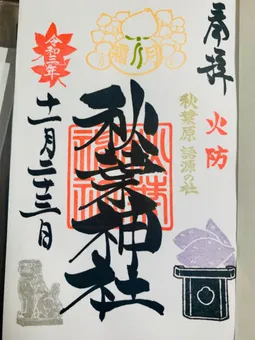 奉拝
火防
秋葉原 語源の社
秋葉神社
令和三年
十一月二十三日